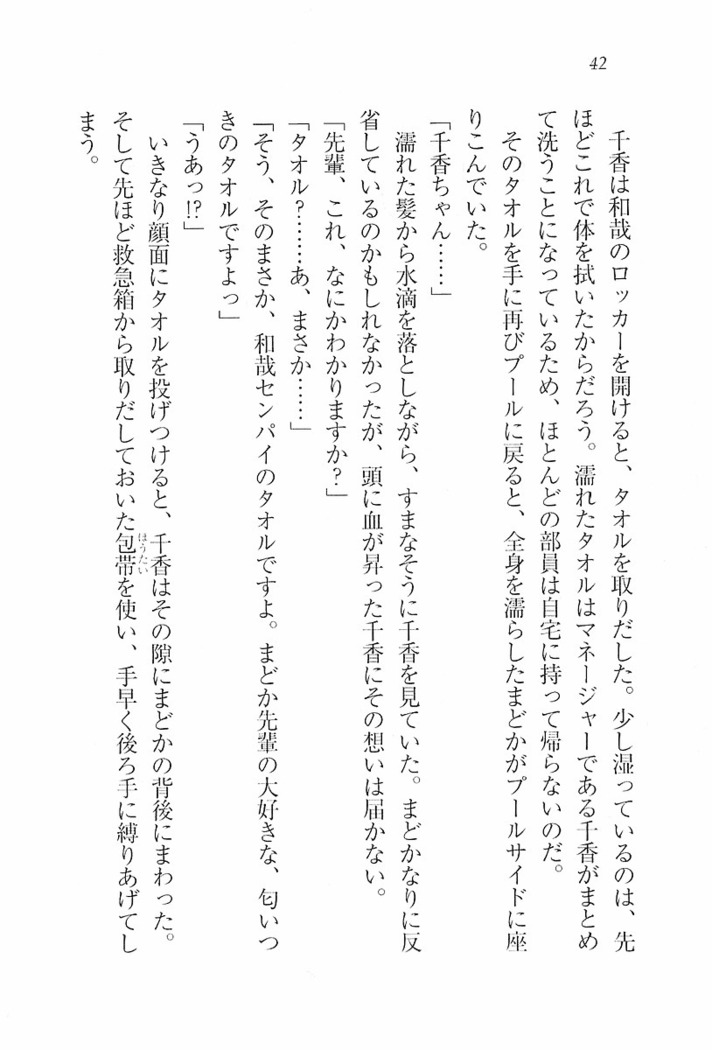 42
千香は和哉のロッカーを開けると、タオルを取りだした。少し湿っているのは、先
ほどこれで体を拭いたからだろう。濡れたタオルはマネージャーである千香がまとめ
て洗うことになっているため、ほとんどの部員は自宅に持って帰らないのだ。
そのタオルを手に再びプールに戻ると、全身を濡らしたまどかがプールサイドに座
りこんでいた。
「千香ちゃん……」
濡れた髪から水滴を落としながら、すまなそうに千香を見ていた。まどかなりに反
省しているのかもしれなかったが、頭に血が昇った千香にその想いは届かない。
「先輩、これ、なにかわかりますか?」
「タオル?……あ、まさか……」
「そう、そのまさか、和哉センパイのタオルですよ。まどか先輩の大好きな、匂いつ
きのタオルですよっ」
「うあっ!?」
いきなり顔面にタオルを投げつけると、千香はその隙にまどかの背後にまわった。
そして先ほど救急箱から取りだしておいた包帯ほうたいを使い、手早く後ろ手に縛りあげてし
まう。